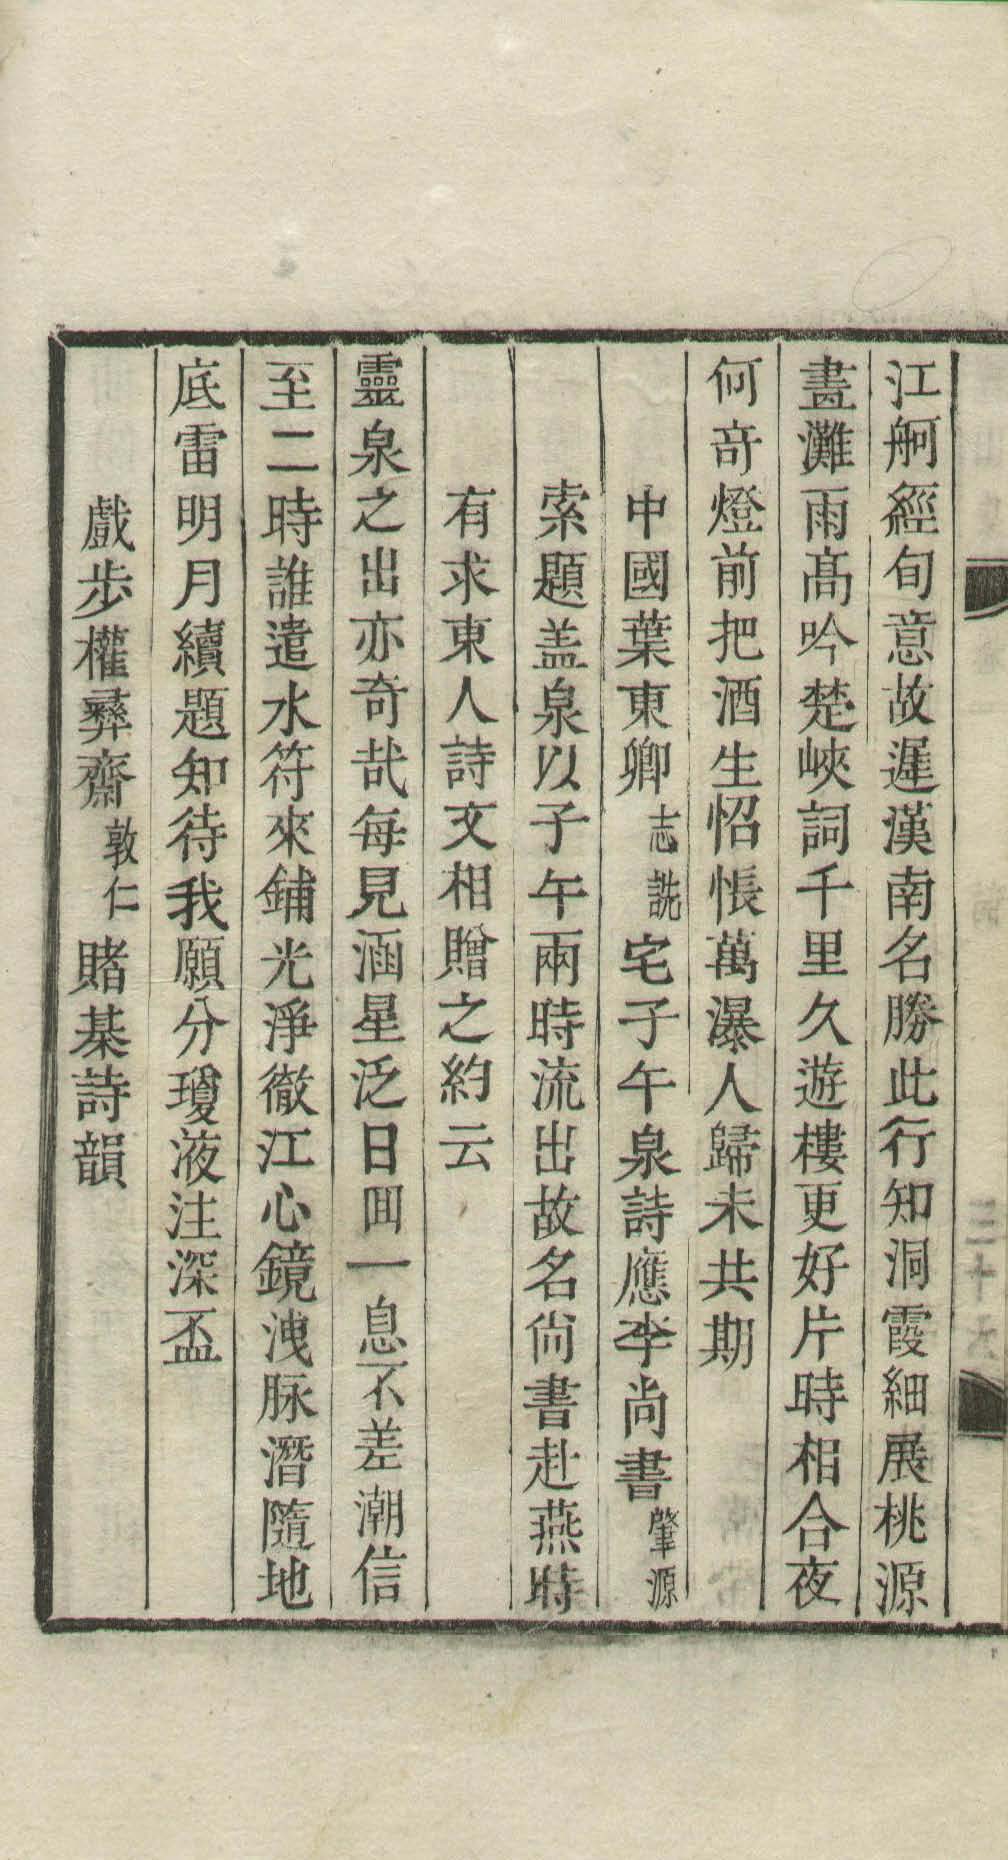 江舸經旬意故遲漢南名勝此行知洞霞細展桃源
畫灘雨高吟楚峽詞千里久遊樓更好片時相合夜
何奇燈前把酒生怊悵萬瀑人歸未共期
中國葉東卿志詵宅子午泉詩應李尚書肇源
索題盖泉以子午兩時流出故名尙書赴燕時
有求東人詩文相贈之約云
靈泉之出亦奇哉每見涵星泛日回一息不差潮信
至二時誰遣水符來鋪光淨徹江心鏡洩脉潛隨地
底雷明月續題知待我願分瓊液注深盃
戲步權彛齋敦仁賭棊詩韻